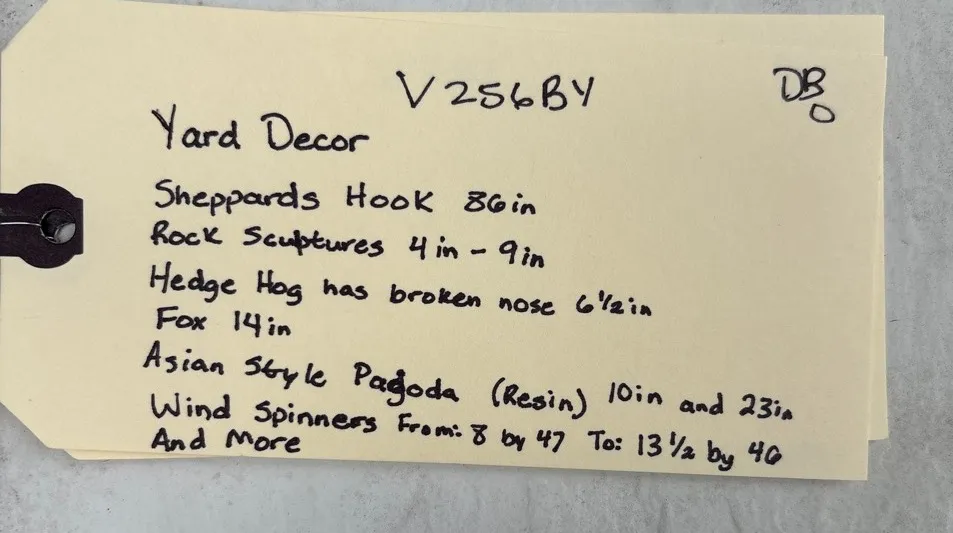 V256BY
DB
O
Yard Decor
Sheppards Hook 86in
Rock Sculptures 4in - 9in
Hedge Hog has broken nose 6 1/2in
Fox 14in
Asian Style Pagoda (Resin) 10in and 23in
Wind Spinners From: 8 by 47 To: 13 1/2 by 46
And More